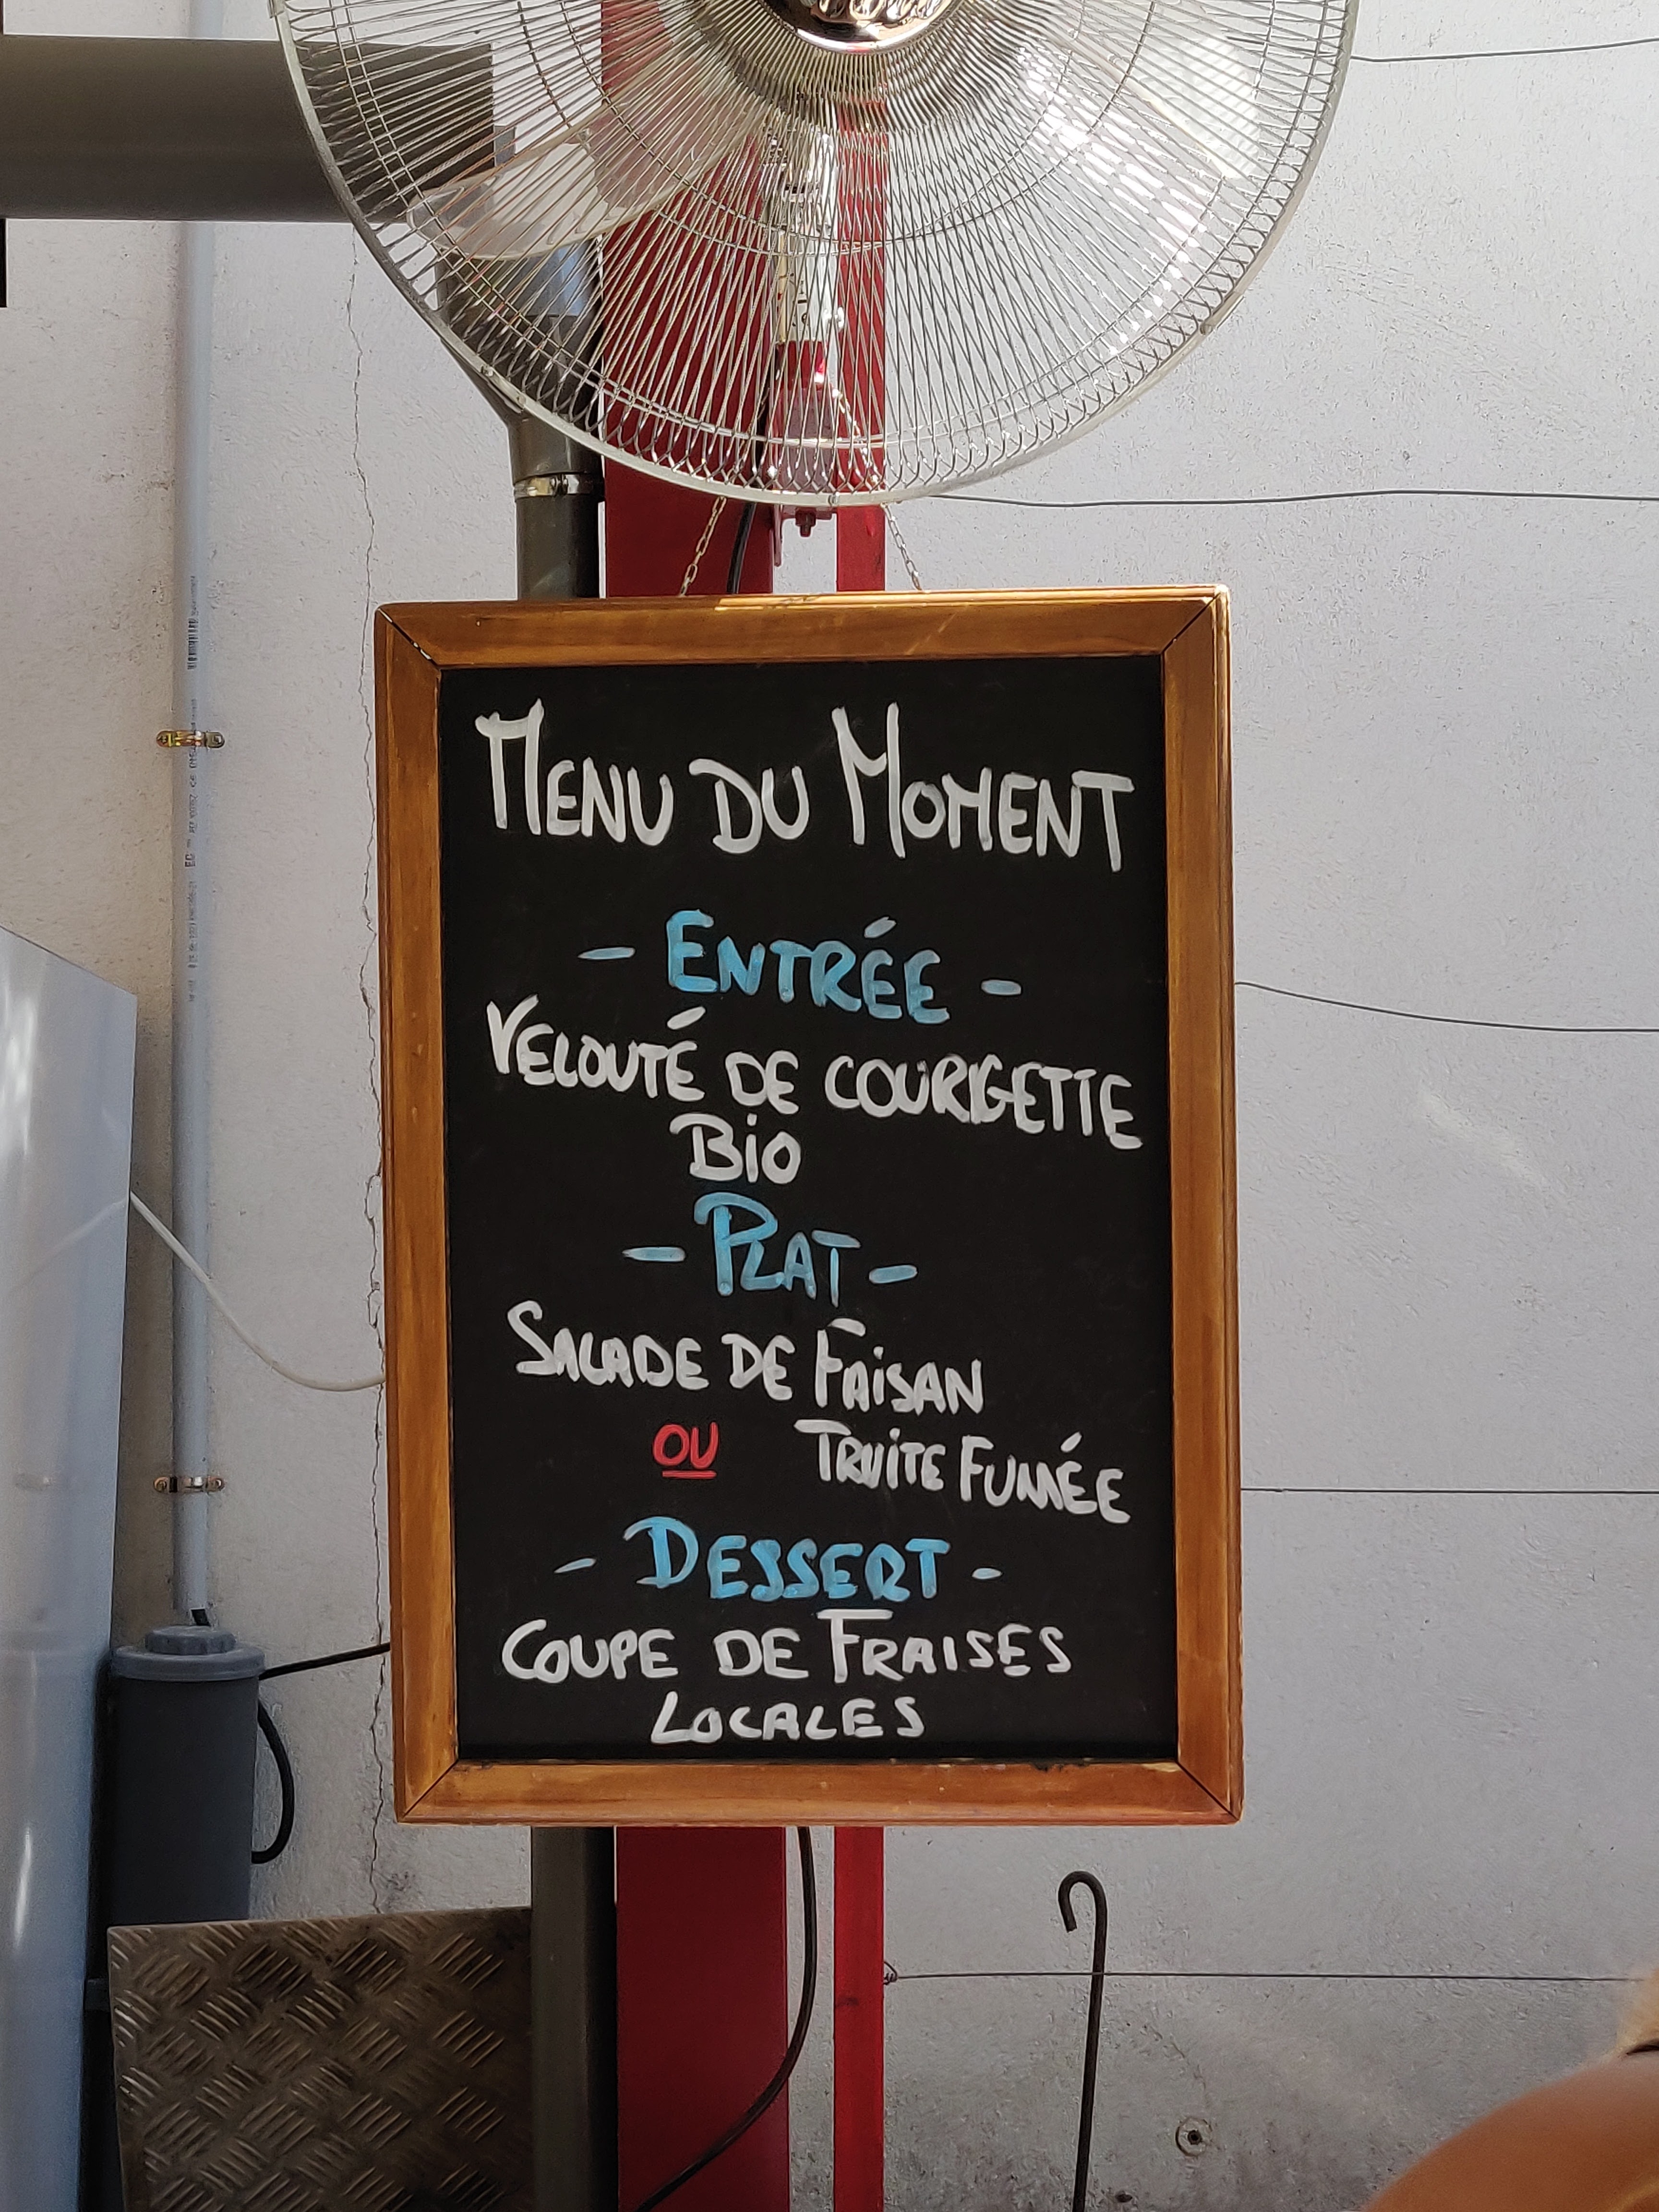 MENU DU MOMENT
- ENTRÉE -
VELOUTÉ DE COURGETTE
BiO
- PLAT -
SALADE DE FAiSAN
OU TRUiTE FUMÉE
- DESSERT -
COUPE DE FRAISES
LOCALES